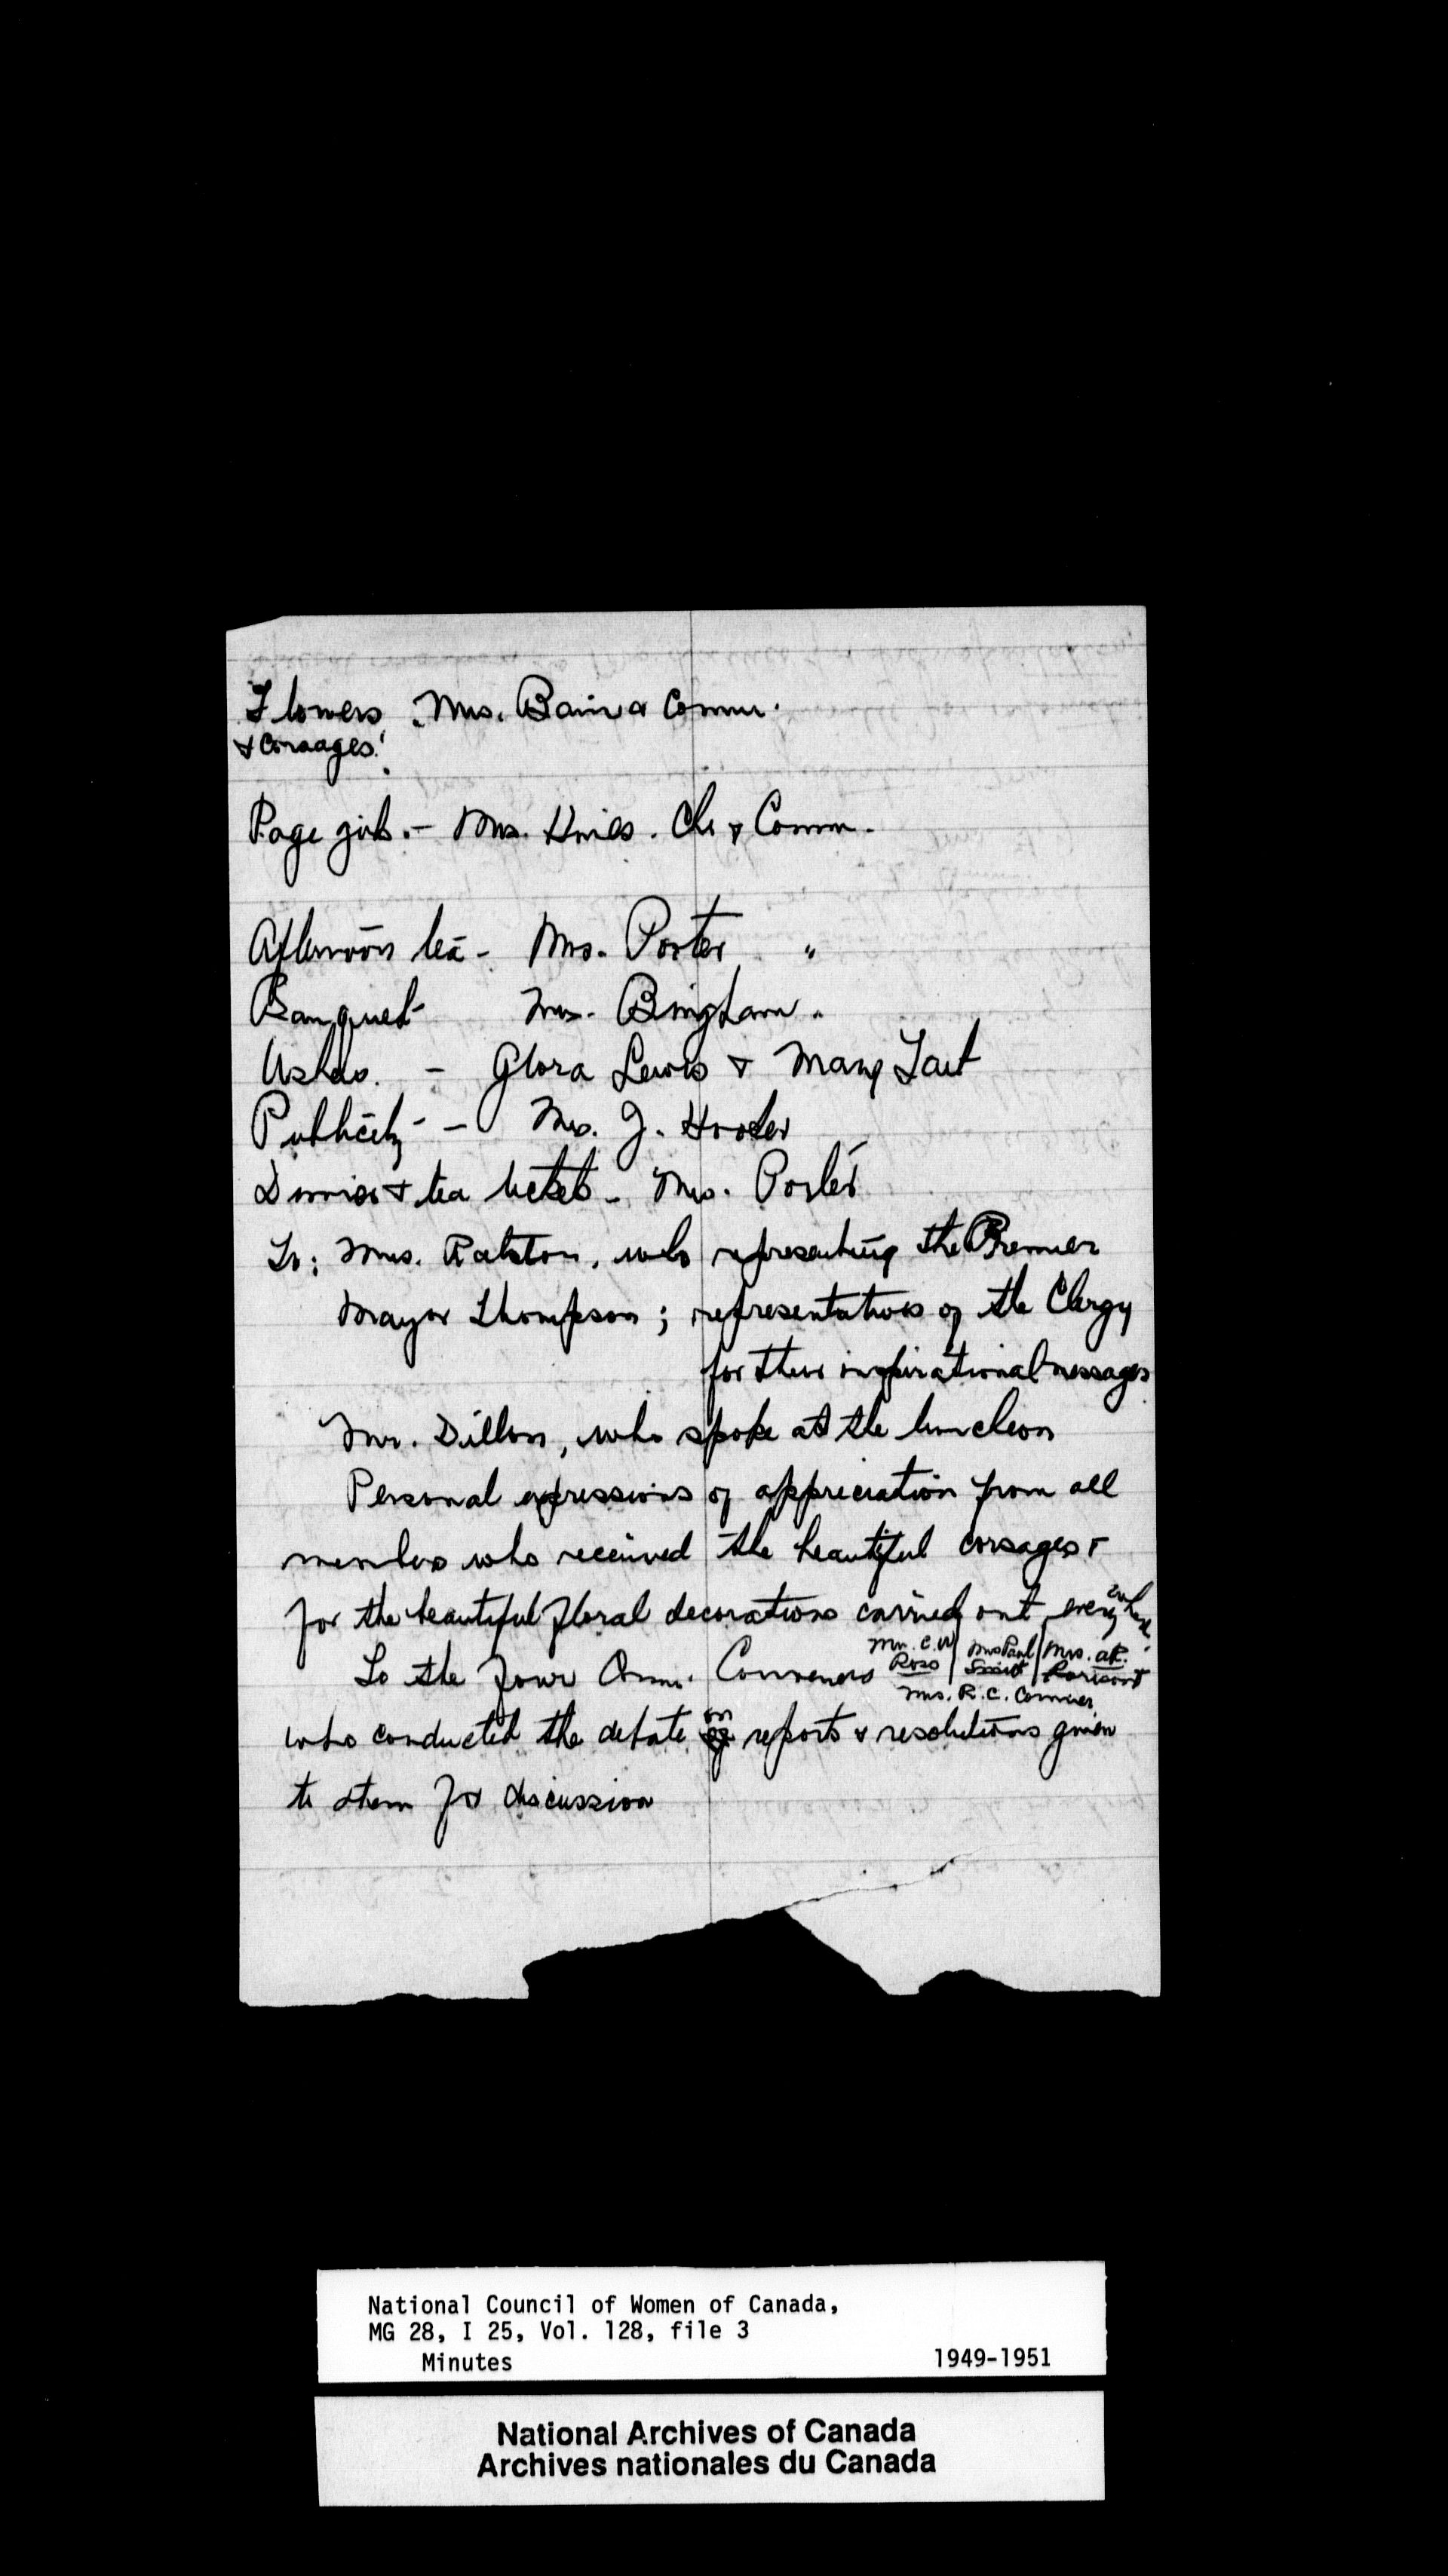 Flowers Mrs. Baird & Comm.
& Corsages.
Page girls. - Mrs. Hines. Ch & Comm.
Afternoon tea - Mrs. Porter "
Banquet Mrs. Bingham "
Ushers. - Glora Lewis & Mary Tait
Publicity - Mrs. J. Hooker
Dinner & tea tickets - Mrs. Porter
To: Mrs. Ralston, who representing the Premier
Mayor Thompson; representatives of the Clergy
for their inspirational messages
Mr. Dillon, who spoke at the luncheon
Personal expressions of appreciation from all
members who received the beautiful corsages &
for the beautiful floral decorations carried out everywhere.
To the four Conveners Mrs. C.W. Ross / Mrs Paul / Mrs. A.R.
Mrs. R.C. Cormier
who conducted the debate on reports & resolutions given
to them for discussion
National Council of Women of Canada,
MG 28, I 25, Vol. 128, file 3
Minutes 1949-1951
National Archives of Canada
Archives nationales du Canada